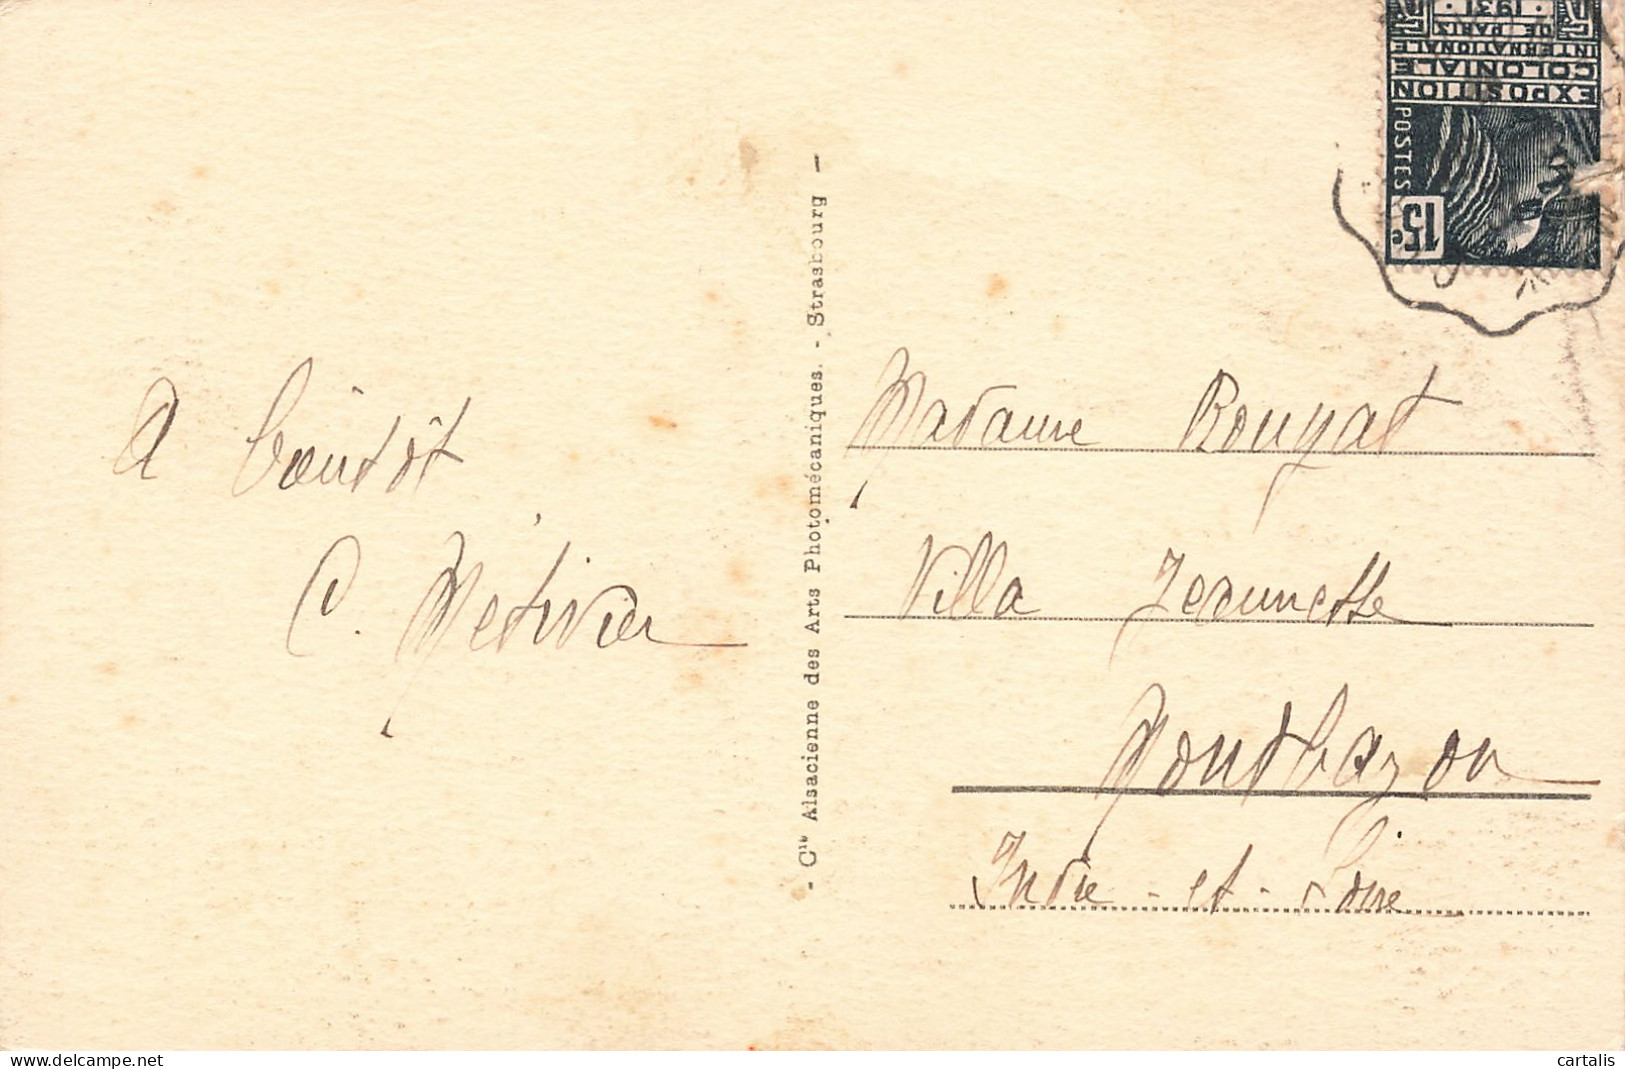 A bientôt
C. Métivier
- Cie Alsacienne des Arts Photomécaniques. - Strasbourg -
EXPOSITION
COLONIALE
INTERNATIONALE
DE PARIS
· 1931 ·
POSTES
15c
Madame Bougat
Villa Jeannette
Montbazon
Indre-et-Loire
cartalis